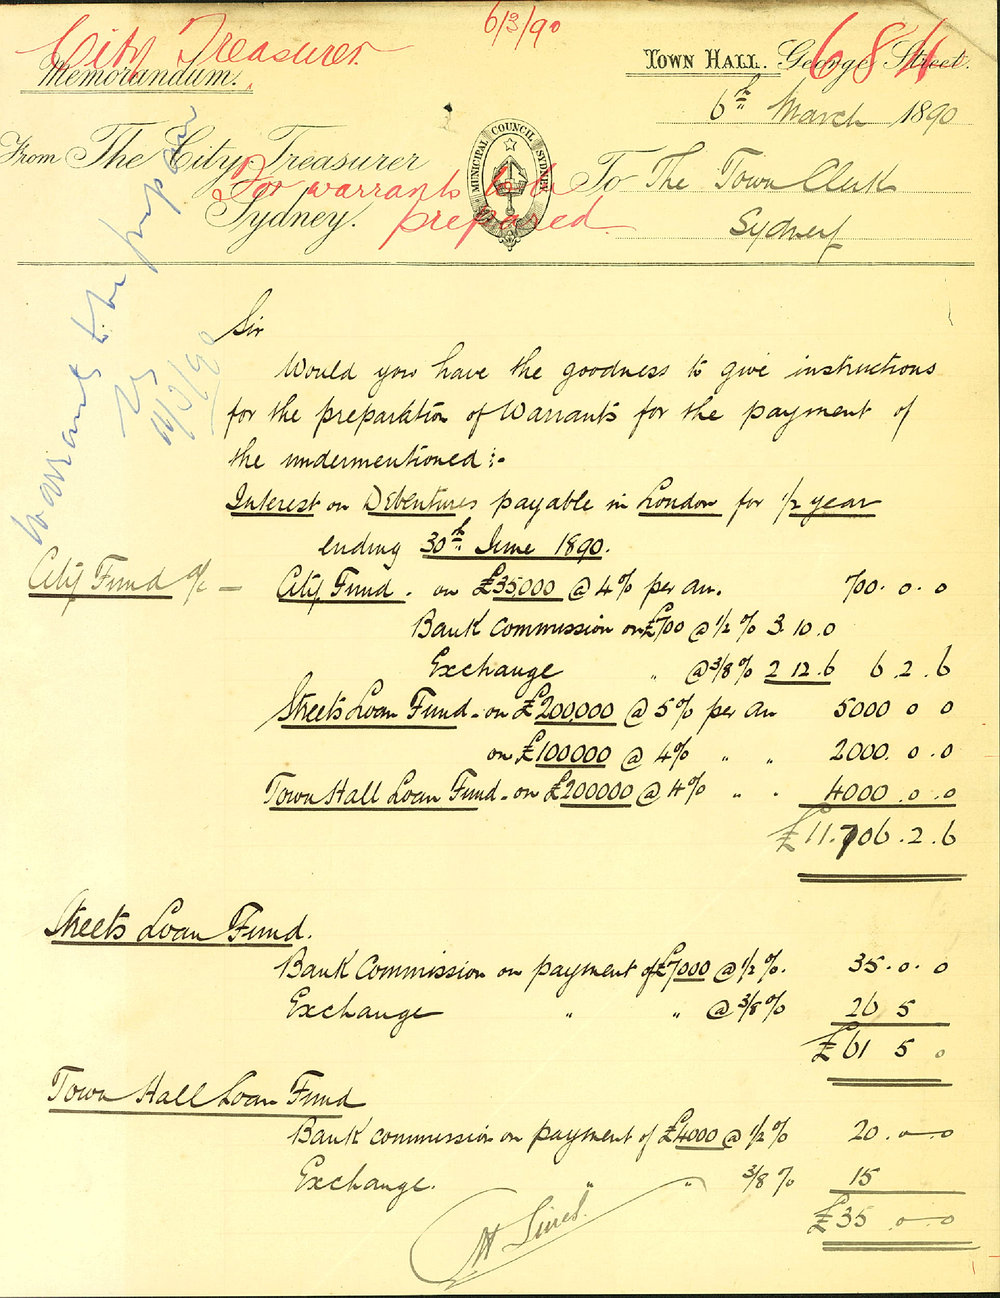 6/3/90
City Treasurer
Memorandum.
Town Hall. George Street.
684
6th March 1890
From The City Treasurer
Sydney.
MUNICIPAL COUNCIL SYDNEY
To The Town Clerk
Sydney
For warrants to be
prepared
Warrants to be prepared
6/3/90
Sir
Would you have the goodness to give instructions
for the preparation of Warrants for the payment of
the undermentioned:-
Interest on Debentures payable in London for 1/2 year
ending 30th June 1890.
City Fund a/c — City Fund. on £35,000 @ 4% per an. 700. 0. 0
Bank Commission on £700 @ 1/2 % 3. 10. 0
Exchange " @ 3/8 % 2 12. 6 6. 2. 6
Streets Loan Fund - on £200,000 @ 5% per an 5000 0 0
on £100000 @ 4% " " 2000. 0. 0
Town Hall Loan Fund - on £200000 @ 4% " " 4000. 0. 0
£11.706. 2. 6
Streets Loan Fund.
Bank Commission on payment of £7000 @ 1/2 %. 35. 0. 0
Exchange " " @ 3/8 % 26 5
£61 5 0
Town Hall Loan Fund
Bank commission on payment of £4000 @ 1/2 % 20. 0 — 0
Exchange. " " 3/8 % 15
£35 0 — 0